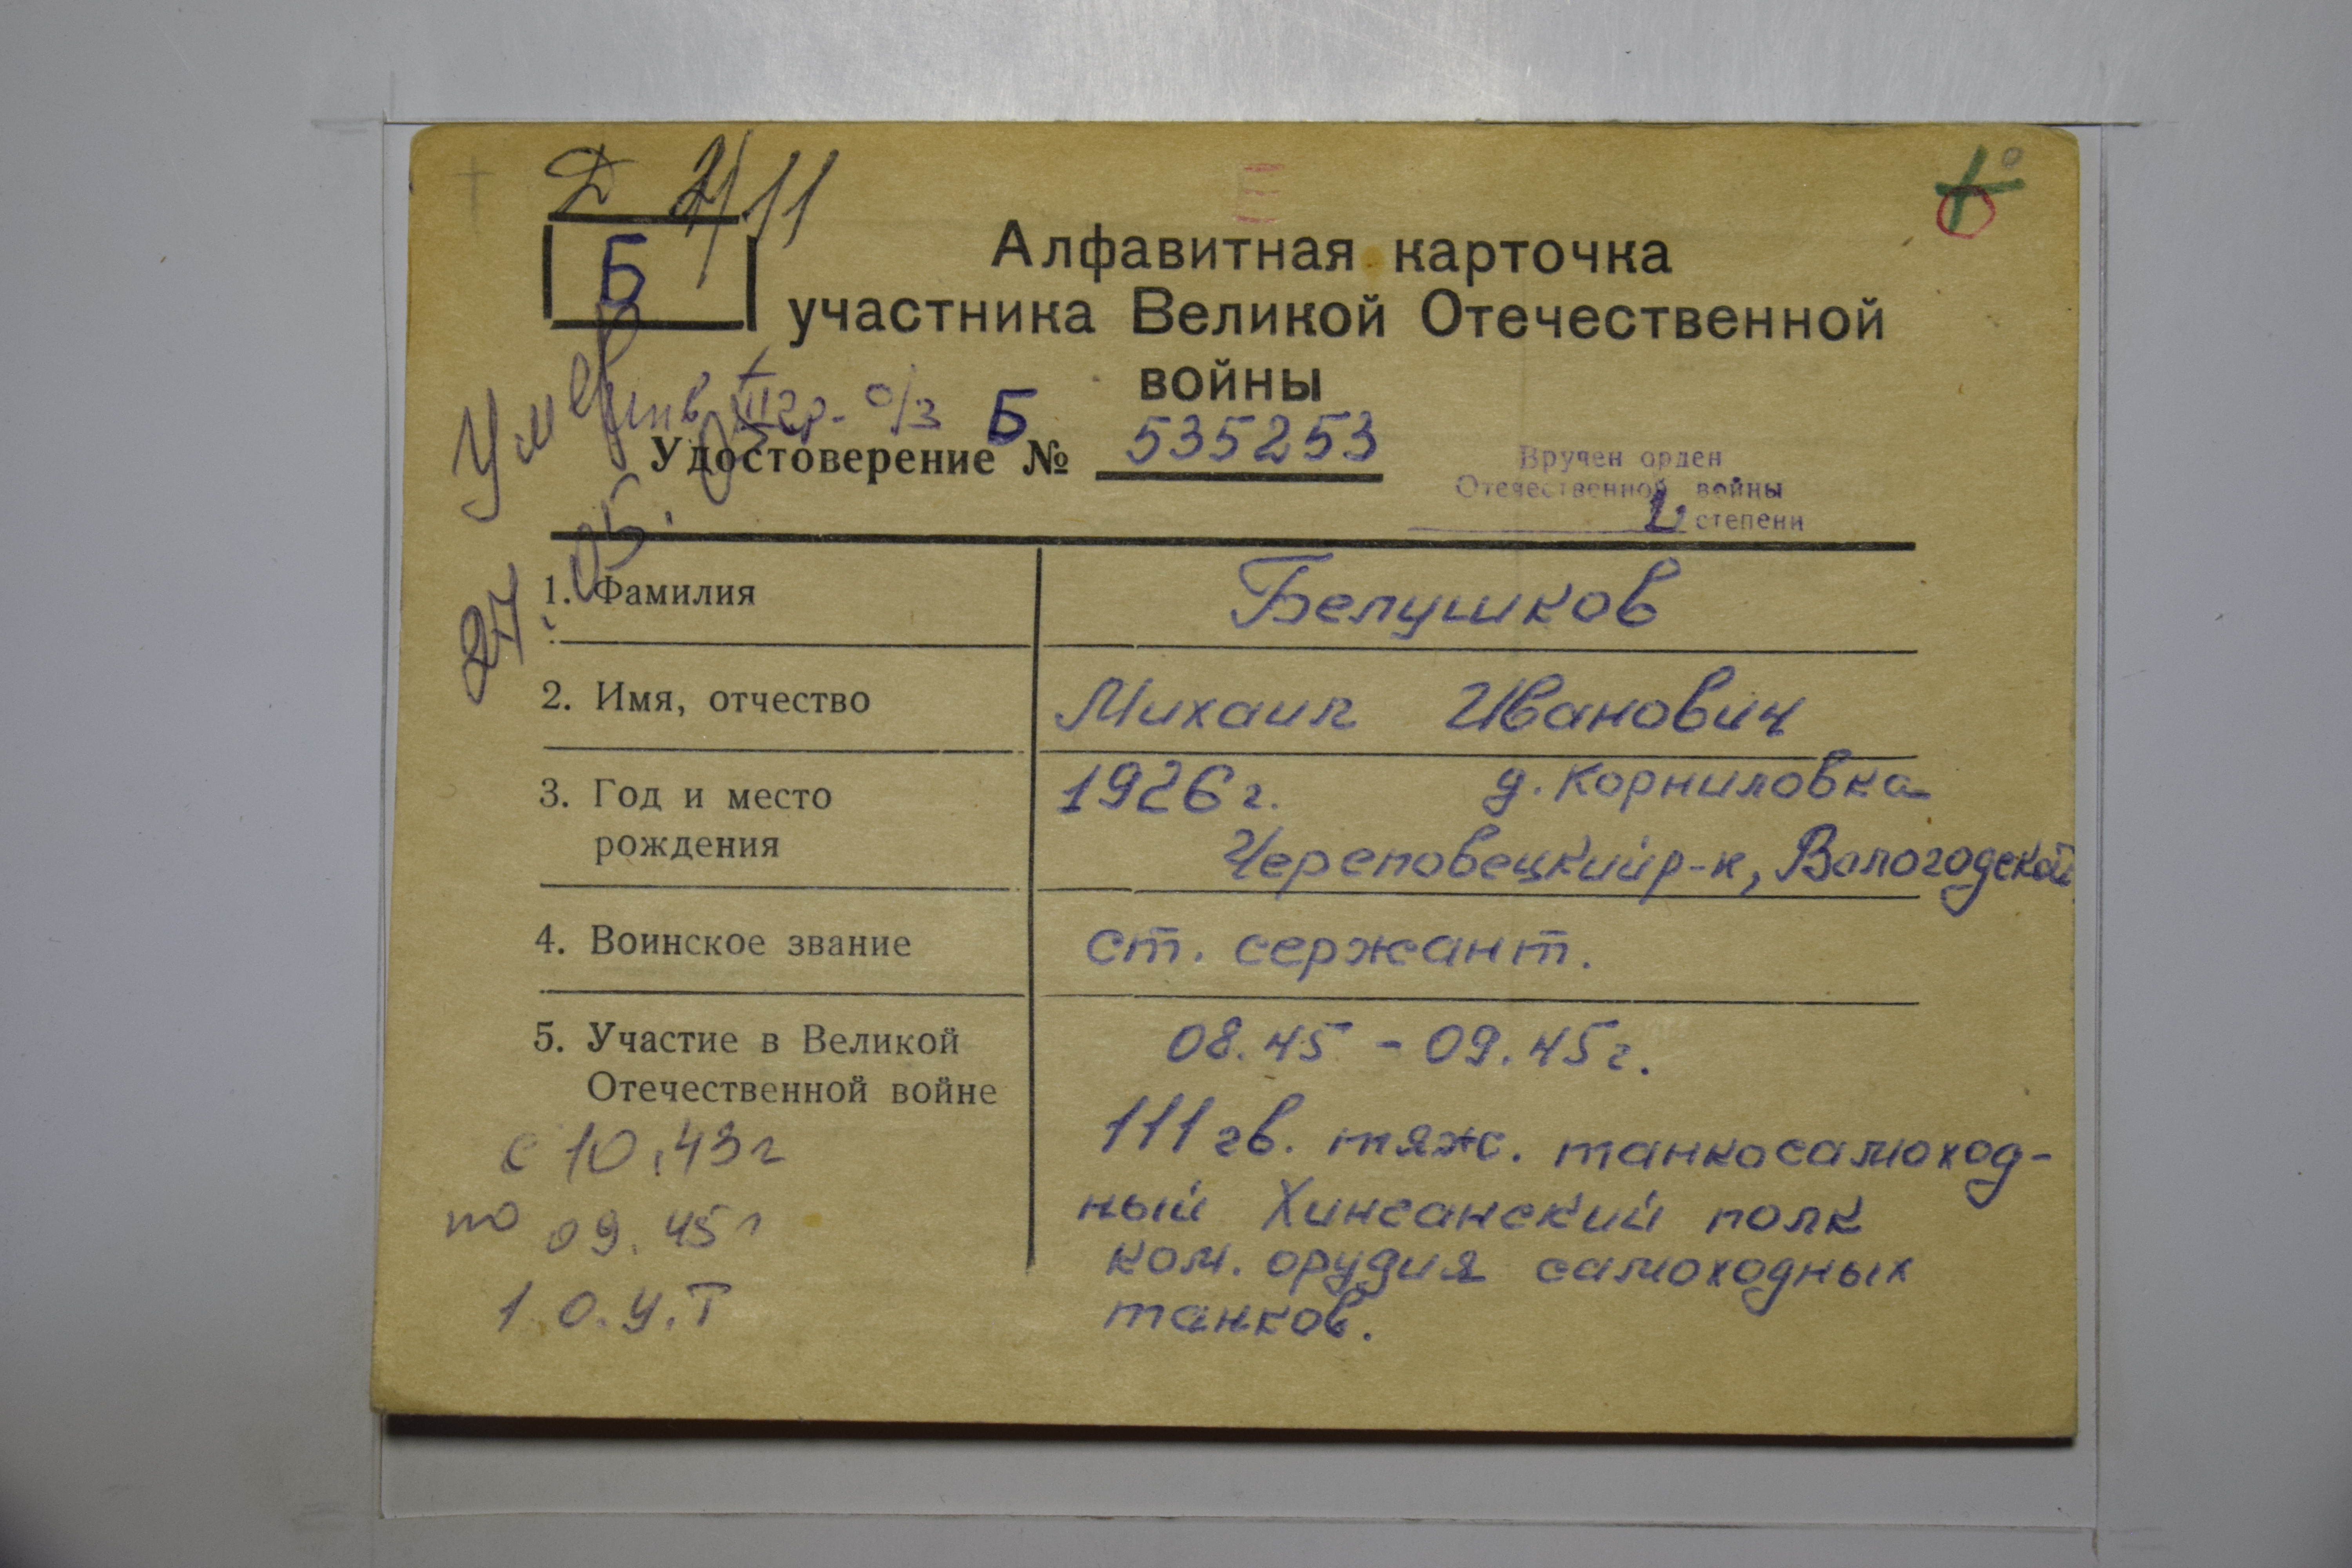 Д 4/11
Б
Алфавитная карточка
участника Великой Отечественной
войны
Умер 27.05.
инв II гр. о/з
Удостоверение Б № 535253
Вручен орден
Отечественной войны
степени
1. Фамилия Белушков
2. Имя, отчество Михаил Иванович
3. Год и место 1926 г. д. Корниловка
рождения Череповецкий р-н, Вологодской
4. Воинское звание ст. сержант.
5. Участие в Великой 08.45 - 09.45 г.
Отечественной войне
111 гв. тяж. танкосамоход-
ный Хинганский полк
ком. орудия самоходных
танков.
с 10.43г
по 09.45 г
1 О.У.Т